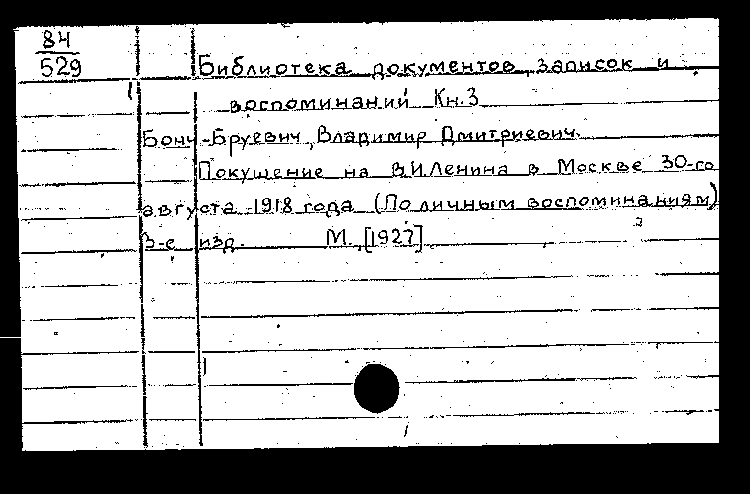 84
529
Библиотека документов, записок и
воспоминаний Кн.3
Бонч-Бруевич, Владимир Дмитриевич.
Покушение на В.И.Ленина в Москве 30-го
августа 1918 года (По личным воспоминаниям)
3-е изд. М. [1927]